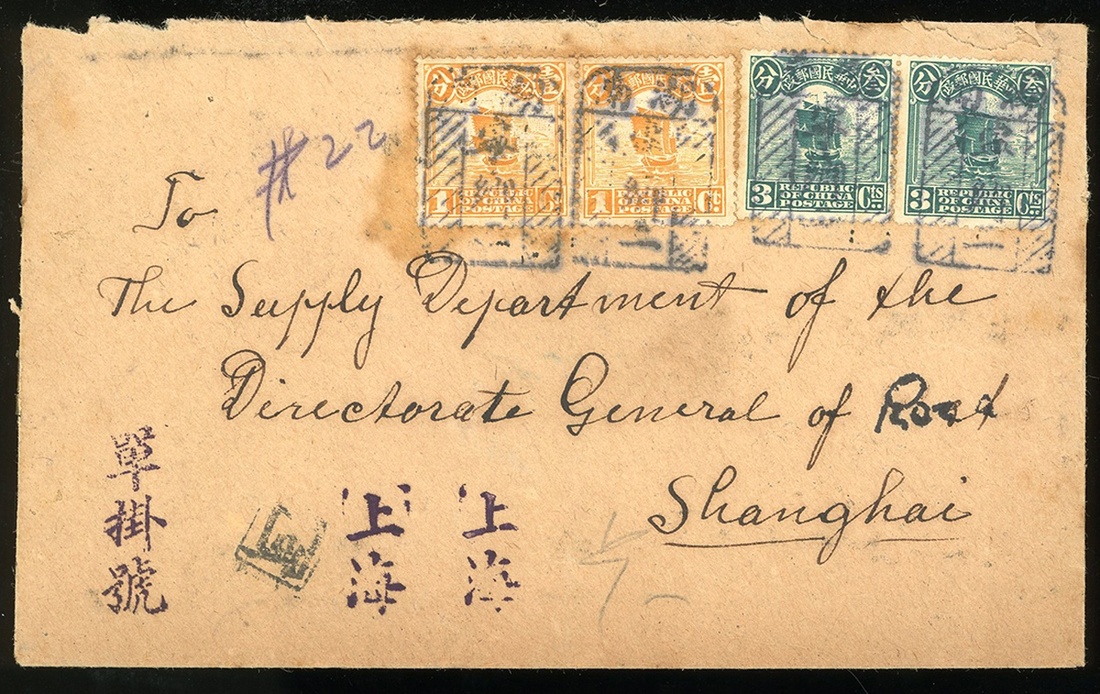 分 中華民國郵政 壹
1 REPUBLIC OF CHINA POSTAGE
分 中華民國郵政 壹
1 REPUBLIC OF CHINA POSTAGE Ct
分 中華民國郵政 叁
3 REPUBLIC OF CHINA POSTAGE Cts
分 中華民國郵政 叁
3 REPUBLIC OF CHINA POSTAGE Cts
#22
To
The Supply Department of the
Directorate General of Post
Shanghai
單掛號
上海
上海